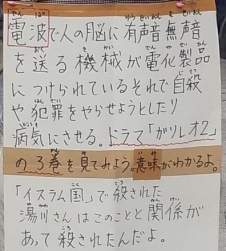 電波で人の脳に有声無声音
を送る機械が電化製品
につけられているそれで自殺
や犯罪をやらせようとしたり
病気にさせる。ドラマ「ガリレオ2」
の3巻を見てみよう。意味がわかるよ。
「イスラム国」で殺された
湯川さんはこのことと関係が
あって殺されたんだよ。